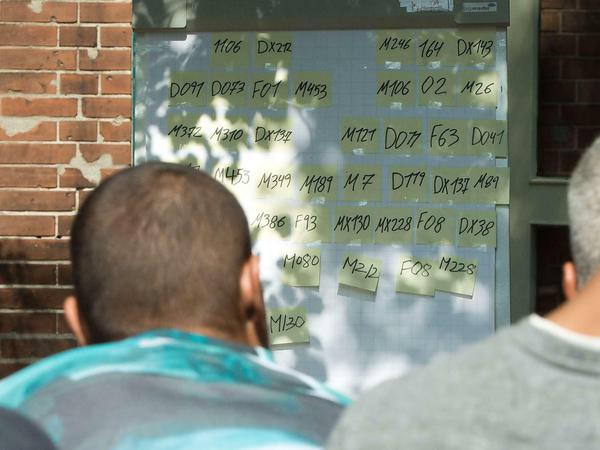 1106 DX212 M246 164 DX143
D091 D073 F01 M453 M106 02 M26
M372 M310 DX137 M121 D077 F63 D041
M453 M349 M189 M7 D119 DX137 M89
M386 F93 MX130 MX228 F08 DX38
M080 M212 F08 M228
M130